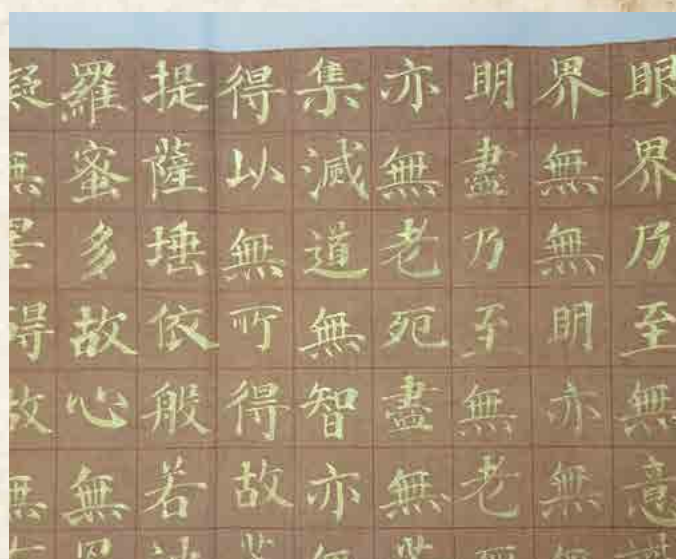 眼界乃至無意
界無無明亦無
明盡乃至無老
亦無老死盡無
集滅道無智亦
得以無所得故
提薩埵依般若
羅蜜多故心無
礙無罣碍故無